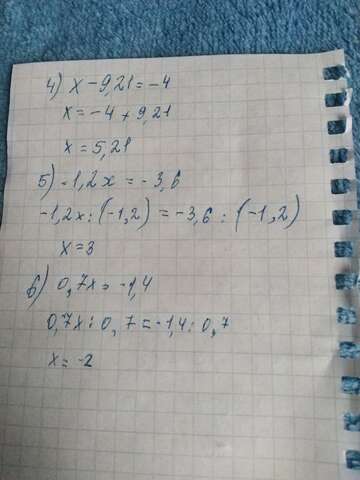 4) x - 9,21 = -4
x = -4 + 9,21
x = 5,21
5) -1,2x = -3,6
-1,2x : (-1,2) = -3,6 : (-1,2)
x = 3
6) 0,7x = -1,4
0,7x : 0,7 = -1,4 : 0,7
x = -2